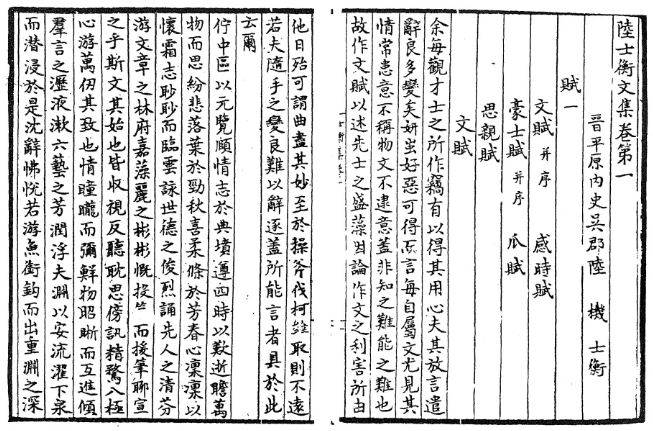 陸士衡文集卷第一
晉平原內史吳郡陸 機 士衡
賦一
文賦并序 感時賦
豪士賦并序 瓜賦
思親賦
文賦
余每觀才士之所作竊有以得其用心夫其放言遣
辭良多變矣妍蚩好惡可得而言每自屬文尤見其
情常患意不稱物文不逮意蓋非知之難能之難也
故作文賦以述先士之盛藻因論作文之利害所由
他日殆可謂曲盡其妙至於操斧伐柯雖取則不遠
若夫隨手之變良難以辭逐蓋所能言者具於此
云爾
佇中區以元覽頤情志於典墳遵四時以歎逝瞻萬
物而思紛悲落葉於勁秋喜柔條於芳春心凜凜以
懷霜志眇眇而臨雲詠世德之俊烈誦先人之清芬
游文章之林府嘉藻麗之彬彬慨投 而援筆聊宣
之乎斯文其始也皆收視反聽耽思傍訊精騖八極
心游萬仞其致也情曈曨而彌鮮物昭晰而互進傾
羣言之瀝液漱六藝之芳潤浮夫淵以安流濯下泉
而潛浸於是沈辭怫悅若游魚銜鈎而出重淵之深